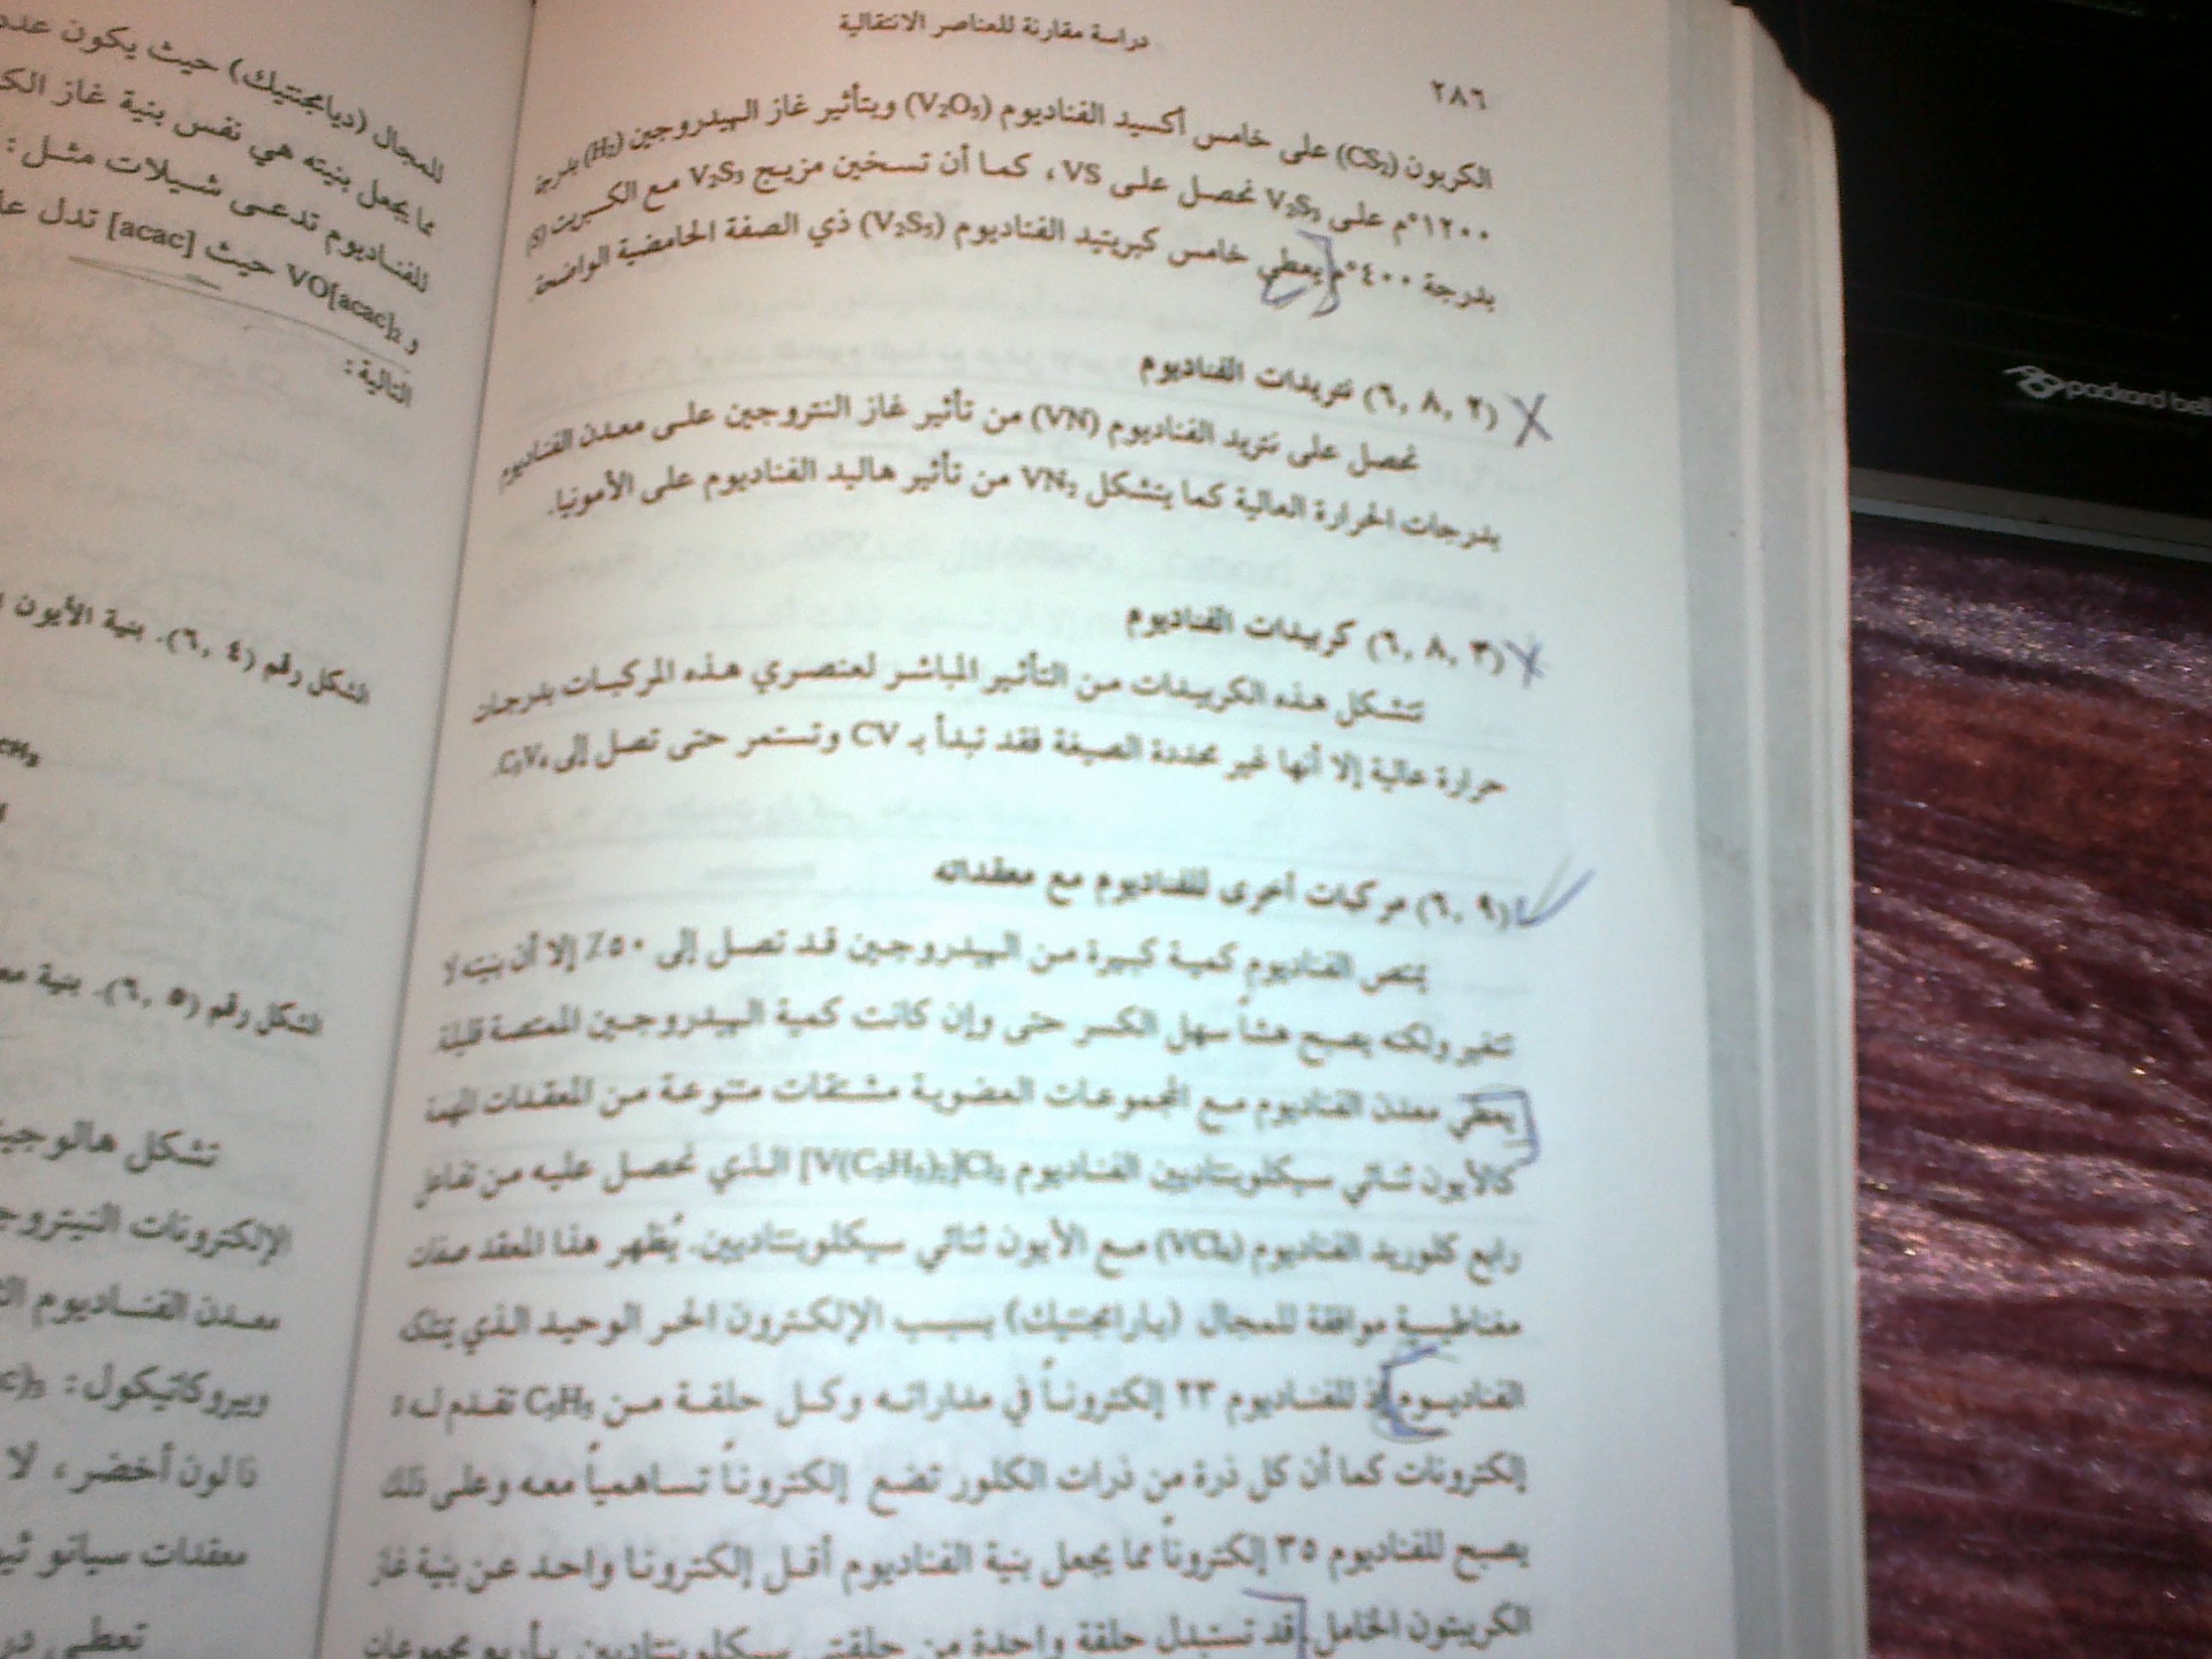 دراسة مقارنة للعناصر الانتقالية
٢٨٦
الكربون (CS₂) على خامس أكسيد الفناديوم (V₂O₅) وبتأثير غاز الهيدروجين (H₂) بدرجة
١٢٠٠°م على V₂S₃ نحصل على VS، كما أن تسخين مزيج V₂S₃ مع الكبريت (S)
بدرجة ٤٠٠°م يعطي خامس كبريتيد الفناديوم (V₂S₅) ذي الصفة الحامضية الواضحة.
(٦,٨,٢) نتريدات الفناديوم
نحصل على نتريد الفناديوم (VN) من تأثير غاز النتروجين على معدن الفناديوم
بدرجات الحرارة العالية كما يتشكل VN₂ من تأثير هاليد الفناديوم على الأمونيا.
(٦,٨,٣) كربيدات الفناديوم
تتشكل هذه الكربيدات من التأثير المباشر لعنصري هذه المركبات بدرجات
حرارة عالية إلا أنها غير محددة الصيغة فقد تبدأ بـ CV وتستمر حتى تصل إلى
(٦,٩) مركبات أخرى للفناديوم مع معقداته
يمتص الفناديوم كمية كبيرة من الهيدروجين قد تصل إلى ٥٠٪ إلا أن بنيته لا
تتغير ولكنه يصبح هشاً سهل الكسر حتى وإن كانت كمية الهيدروجين الممتصة قليلة.
يعطي معدن الفناديوم مع المجموعات العضوية مشتقات متنوعة من المعقدات المهمة
كالأيون ثنائي سيكلوبنتاديين الفناديوم [V(C₅H₅)₂]Cl₂ الذي نحصل عليه من تفاعل
رابع كلوريد الفناديوم (VCl₄) مع الأيون ثنائي سيكلوبنتاديين. يُظهر هذا المعقد صفات
مغناطيسية موافقة للمجال (بارامجنتيك) بسبب الإلكترون الحر الوحيد الذي يمتلكه
الفناديوم إذ للفناديوم ٢٣ إلكتروناً في مداراته وكل حلقة من C₅H₅ تقدم له ٥
إلكترونات كما أن كل ذرة من ذرات الكلور تضع إلكتروناً تساهمياً معه وعلى ذلك
يصبح للفناديوم ٣٥ إلكتروناً مما يجعل بنية الفناديوم أقل إلكترونا واحد عن بنية غاز
الكريبتون الخامل. قد تستبدل حلقة واحدة من حلقتي سيكلوبنتاديين بأربع مجموعات
للمجال (ديامجنتيك) حيث يكون عدد
مما يجعل بنيته هي نفس بنية غاز
للفناديوم تدعى شيلات مثل:
و VO[acac]₂ حيث [acac] تدل
التالية:
الشكل رقم (٦,٤). بنية الأيون
الشكل رقم (٦,٥). بنية
تشكل
الإلكترونات
معدن الفناديوم
وبيروكاتيكول:
ذا لون أخضر، لا
معقدات سيانو
تعطي
packard bell